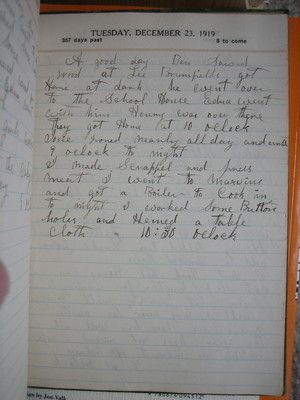 TUESDAY, DECEMBER 23, 1919
357 days past 8 to come
A good day Ben Sawed
wood at Lee got
Home at dark he went over
to the School House Edna went
With him Henny was over there
they got Home at 10 oclock
Ironed nearly all day and until
9 oclock to night
I made Scrappel and
meat I went to Marvins
and got a Boiler to Cook in
to night I worked some Button
holes and Hemed a table
Cloth - 10:30 oclock
by Jon Volk